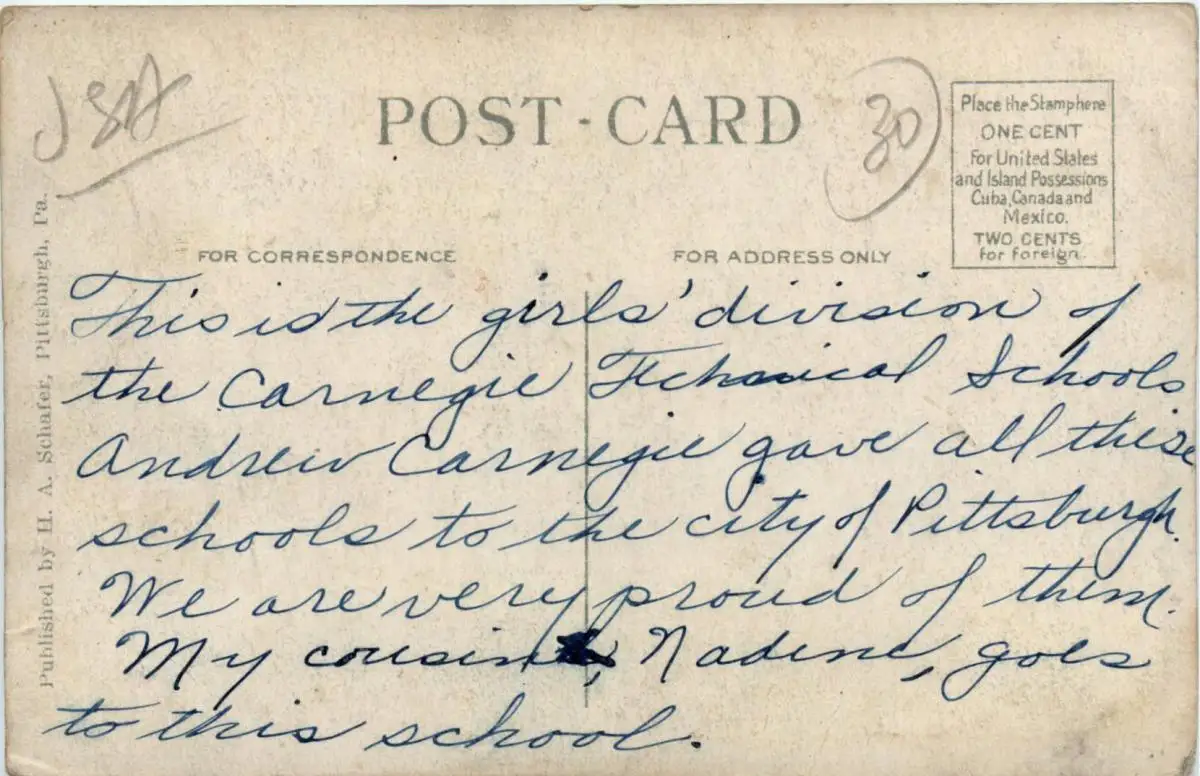 POST - CARD
30
Place the Stamp here
ONE CENT
For United States
and Island Possessions
Cuba, Canada and
Mexico.
TWO CENTS
for foreign.
FOR CORRESPONDENCE
FOR ADDRESS ONLY
This is the girls' division of
the Carnegie Technical Schools
Andrew Carnegie gave all these
schools to the city of Pittsburgh.
We are very proud of them.
My cousin, Nadine, goes
to this school.
Published by H. A. Schafer, Pittsburgh, Pa.